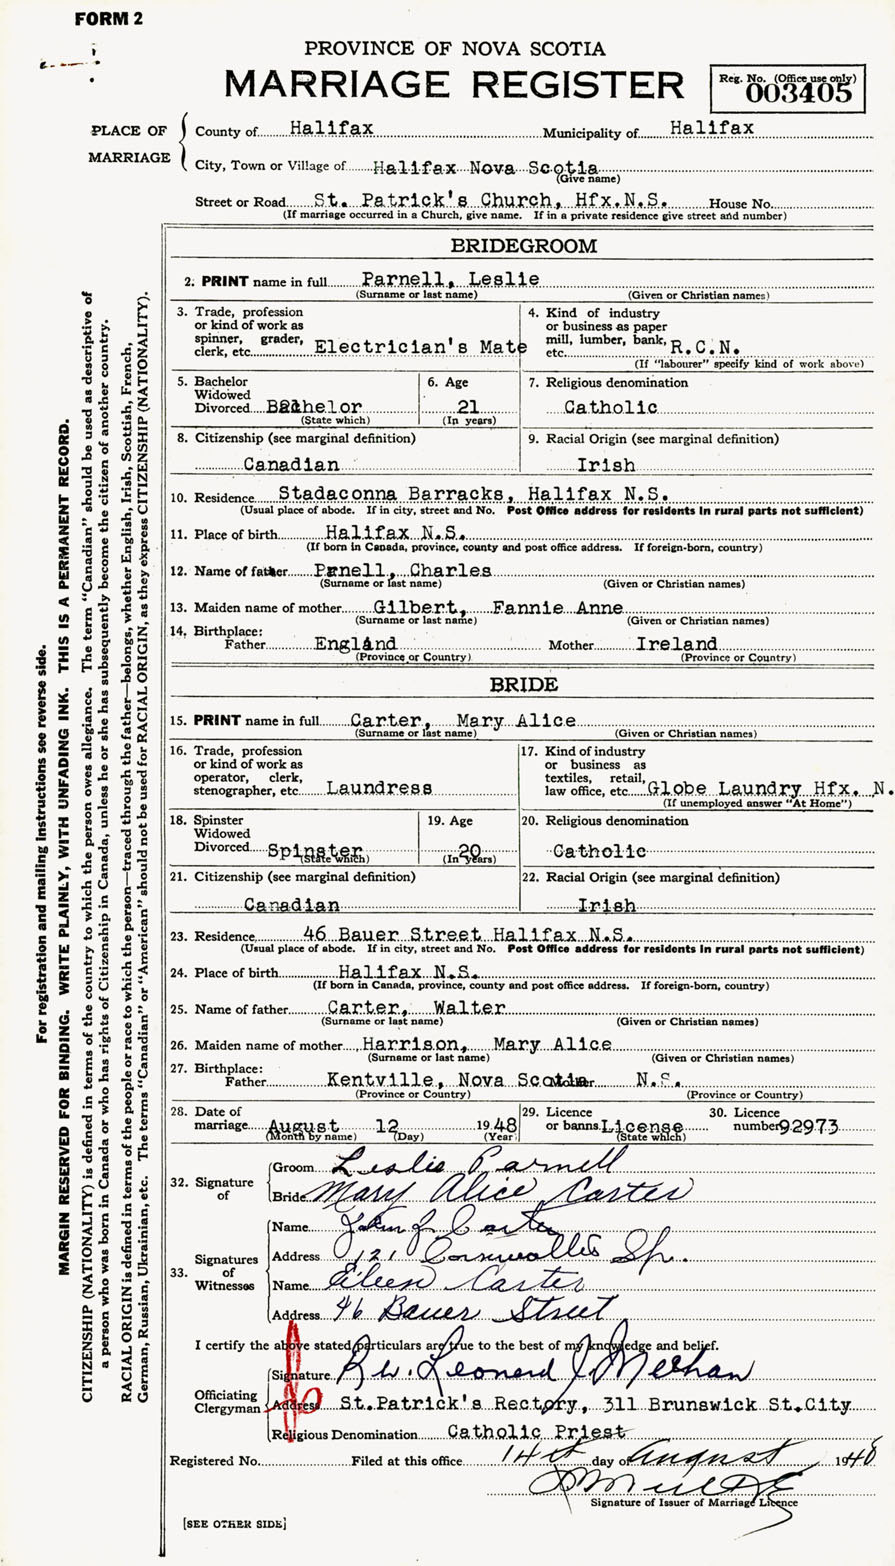 FORM 2
PROVINCE OF NOVA SCOTIA
MARRIAGE REGISTER
Reg. No. (Office use only)
003405
PLACE OF MARRIAGE
County of Halifax Municipality of Halifax
City, Town or Village of Halifax Nova Scotia
(Give name)
Street or Road St. Patrick's Church, Hfx.N.S. House No.
(If marriage occurred in a Church, give name. If in a private residence give street and number)
BRIDEGROOM
2. PRINT name in full Parnell, Leslie
(Surname or last name) (Given or Christian names)
3. Trade, profession or kind of work as spinner, grader, clerk, etc. Electrician's Mate
4. Kind of industry or business as paper mill, lumber, bank, etc. R.C.N.
(If "labourer" specify kind of work above)
5. Bachelor Widowed Divorced Bachelor
(State which)
6. Age 21
(In years)
7. Religious denomination
Catholic
8. Citizenship (see marginal definition)
Canadian
9. Racial Origin (see marginal definition)
Irish
10. Residence Stadaconna Barracks, Halifax N.S.
(Usual place of abode. If in city, street and No. Post Office address for residents in rural parts not sufficient)
11. Place of birth Halifax N.S.
(If born in Canada, province, county and post office address. If foreign-born, country)
12. Name of father Prnell, Charles
(Surname or last name) (Given or Christian names)
13. Maiden name of mother Gilbert, Fannie Anne
(Surname or last name) (Given or Christian names)
14. Birthplace:
Father England Mother Ireland
(Province or Country) (Province or Country)
BRIDE
15. PRINT name in full Carter, Mary Alice
(Surname or last name) (Given or Christian names)
16. Trade, profession or kind of work as operator, clerk, stenographer, etc. Laundress
17. Kind of industry or business as textiles, retail, law office, etc. Globe Laundry Hfx. N.
(If unemployed answer "At Home")
18. Spinster Widowed Divorced Spinster
(State which)
19. Age 20
(In years)
20. Religious denomination
Catholic
21. Citizenship (see marginal definition)
Canadian
22. Racial Origin (see marginal definition)
Irish
23. Residence 46 Bauer Street Halifax N.S.
(Usual place of abode. If in city, street and No. Post Office address for residents in rural parts not sufficient)
24. Place of birth Halifax N.S.
(If born in Canada, province, county and post office address. If foreign-born, country)
25. Name of father Carter, Walter
(Surname or last name) (Given or Christian names)
26. Maiden name of mother Harrison, Mary Alice
(Surname or last name) (Given or Christian names)
27. Birthplace:
Father Kentville, Nova Scotia Mother N.S.
(Province or Country) (Province or Country)
28. Date of marriage August 12 1948
(Month by name) (Day) (Year)
29. Licence or banns License
(State which)
30. Licence number 92973
32. Signature of
Groom Leslie Parnell
Bride Mary Alice Carter
33. Signatures of Witnesses
Name John J Carter
Address 121 Cornwallis St.
Name Eileen Carter
Address 46 Bauer Street
I certify the above stated particulars are true to the best of my knowledge and belief.
Officiating Clergyman
Signature Rev. Leonard J. Meehan
Address St.Patrick's Rectory, 311 Brunswick St.City
Religious Denomination Catholic Priest
Registered No. Filed at this office 14th day of August 1948
Signature of Issuer of Marriage Licence
[SEE OTHER SIDE]
For registration and mailing instructions see reverse side.
MARGIN RESERVED FOR BINDING. WRITE PLAINLY, WITH UNFADING INK. THIS IS A PERMANENT RECORD.
CITIZENSHIP (NATIONALITY) is defined in terms of the country to which the person owes allegiance. The term "Canadian" should be used as descriptive of
a person who was born in Canada or who has rights of Citizenship in Canada, unless he or she has subsequently become the citizen of another country.
RACIAL ORIGIN is defined in terms of the people or race to which the person—traced through the father—belongs, whether English, Irish, Scottish, French,
German, Russian, Ukrainian, etc. The terms "Canadian" or "American" should not be used for RACIAL ORIGIN, as they express CITIZENSHIP (NATIONALITY).